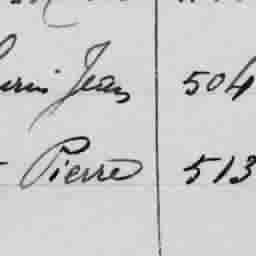 Jean 504
Pierre 513